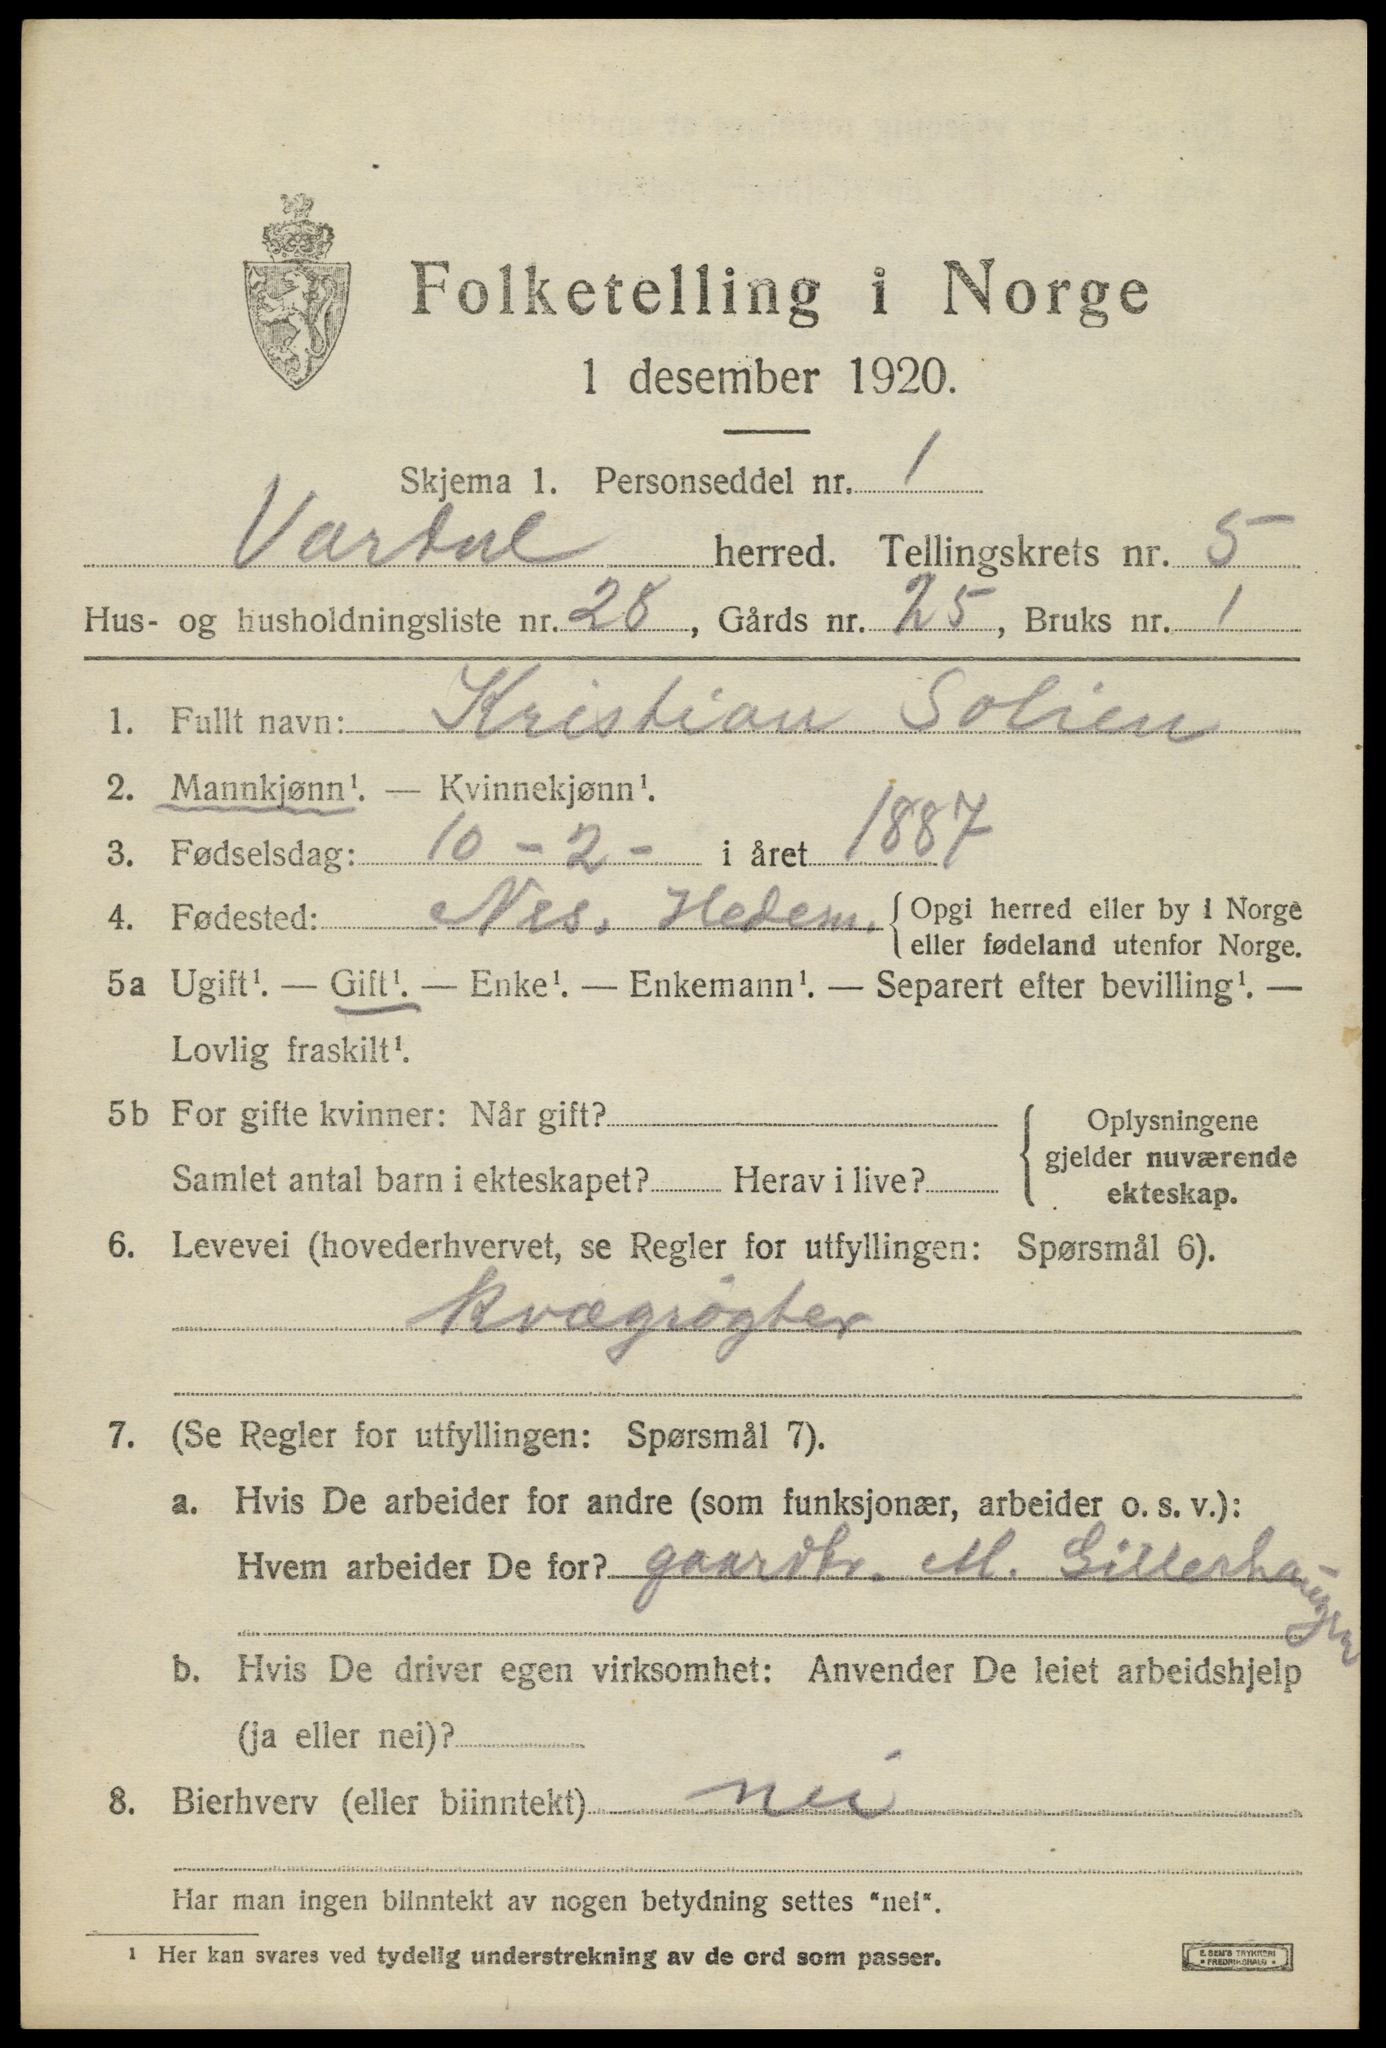 Folketelling i Norge
1 desember 1920.
Skjema 1. Personseddel nr. 1
Vardal herred. Tellingskrets nr. 5
Hus- og husholdningsliste nr. 28, Gårds nr. 25, Bruks nr. 1
1. Fullt navn: Kristian Solien
2. Mannkjønn¹. — Kvinnekjønn¹.
3. Fødselsdag: 10 - 2 - i året 1887
4. Fødested: Nes, Hedem. {Opgi herred eller by i Norge
eller fødeland utenfor Norge.
5a Ugift¹. — Gift¹. — Enke¹. — Enkemann¹. — Separert efter bevilling¹. —
Lovlig fraskilt¹.
5b For gifte kvinner: Når gift?
Samlet antal barn i ekteskapet? Herav i live?
{ Oplysningene
gjelder nuværende
ekteskap.
6. Levevei (hovederhvervet, se Regler for utfyllingen: Spørsmål 6).
Kvægrøgter
7. (Se Regler for utfyllingen: Spørsmål 7).
a. Hvis De arbeider for andre (som funksjonær, arbeider o. s. v.):
Hvem arbeider De for? gaardbr. M. Gillerhaugen
b. Hvis De driver egen virksomhet: Anvender De leiet arbeidshjelp
(ja eller nei)?
8. Bierhverv (eller biinntekt) nei
Har man ingen biinntekt av nogen betydning settes "nei".
¹ Her kan svares ved tydelig understrekning av de ord som passer.
E. SEM'S TRYKKERI
* FREDRIKSHALD *